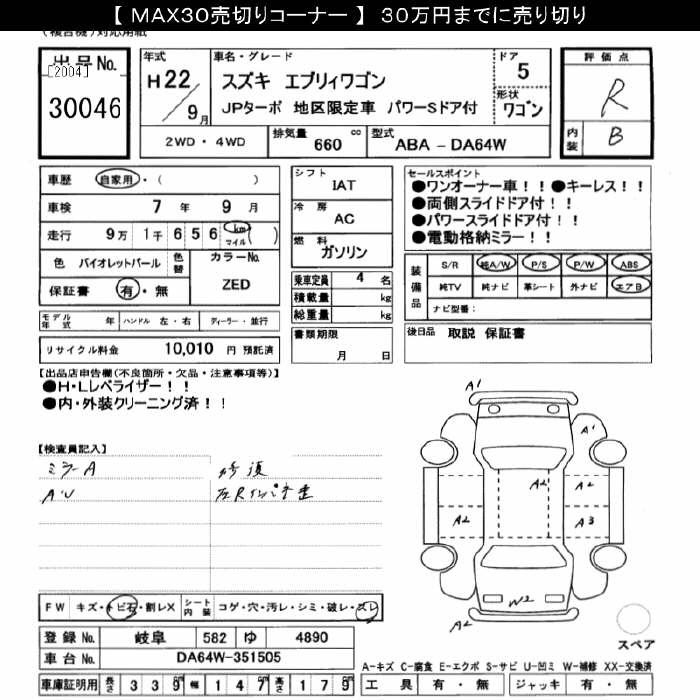 【 MAX30売切りコーナー 】 30万円までに売り切り
出品No.
[2004]
30046
年式
H22/9月
車名・グレード
スズキ エブリィワゴン
JPターボ 地区限定車 パワーSドア付
ドア
5
形状
ワゴン
評価点
R
内装
B
2WD・4WD
排気量 660 cc
型式 ABA - DA64W
車歴 自家用・( )
車検 7年 9月
走行 9万 1千 6 5 6 km マイル ( )
色 バイオレットパール 色替
カラーNo.
ZED
保証書 有・無
モデル年式 年 ハンドル 左・右 ディーラー・並行
リサイクル料金 10,010 円 預託済
シフト
IAT
冷房
AC
燃料
ガソリン
乗車定員 4 名
積載量 kg
総重量 kg
書類期限
月 日
セールスポイント
●ワンオーナー車!!●キーレス!!
●両側スライドドア付!!
●パワースライドドア付!!
●電動格納ミラー!!
装備品
S/R 純A/W P/S P/W ABS
純TV 純ナビ 革シート 外ナビ エアB
ナビ型番:
後日品 取説 保証書
【出品店申告欄(不良箇所・欠品・注意事項等)】
●H・Lレベライザー!!
●内・外装クリーニング済!!
【検査員記入】
ミラーA
AU
修復
左Rインパネ歪
FW キズ・トビ石・割レX
シート内装 コゲ・穴・汚レ・シミ・破レ・スレ
登録No. 岐阜 582 ゆ 4890
車台No. DA64W-351505
車庫証明用 長さ 339cm 幅 147cm 高さ 179cm
A1
A1
A2
A2
A2
A3
W2
A2
スペア
A-キズ C-腐食 E-エクボ S-サビ U-凹ミ W-補修 XX-交換済
工具 有・無 ジャッキ 有・無